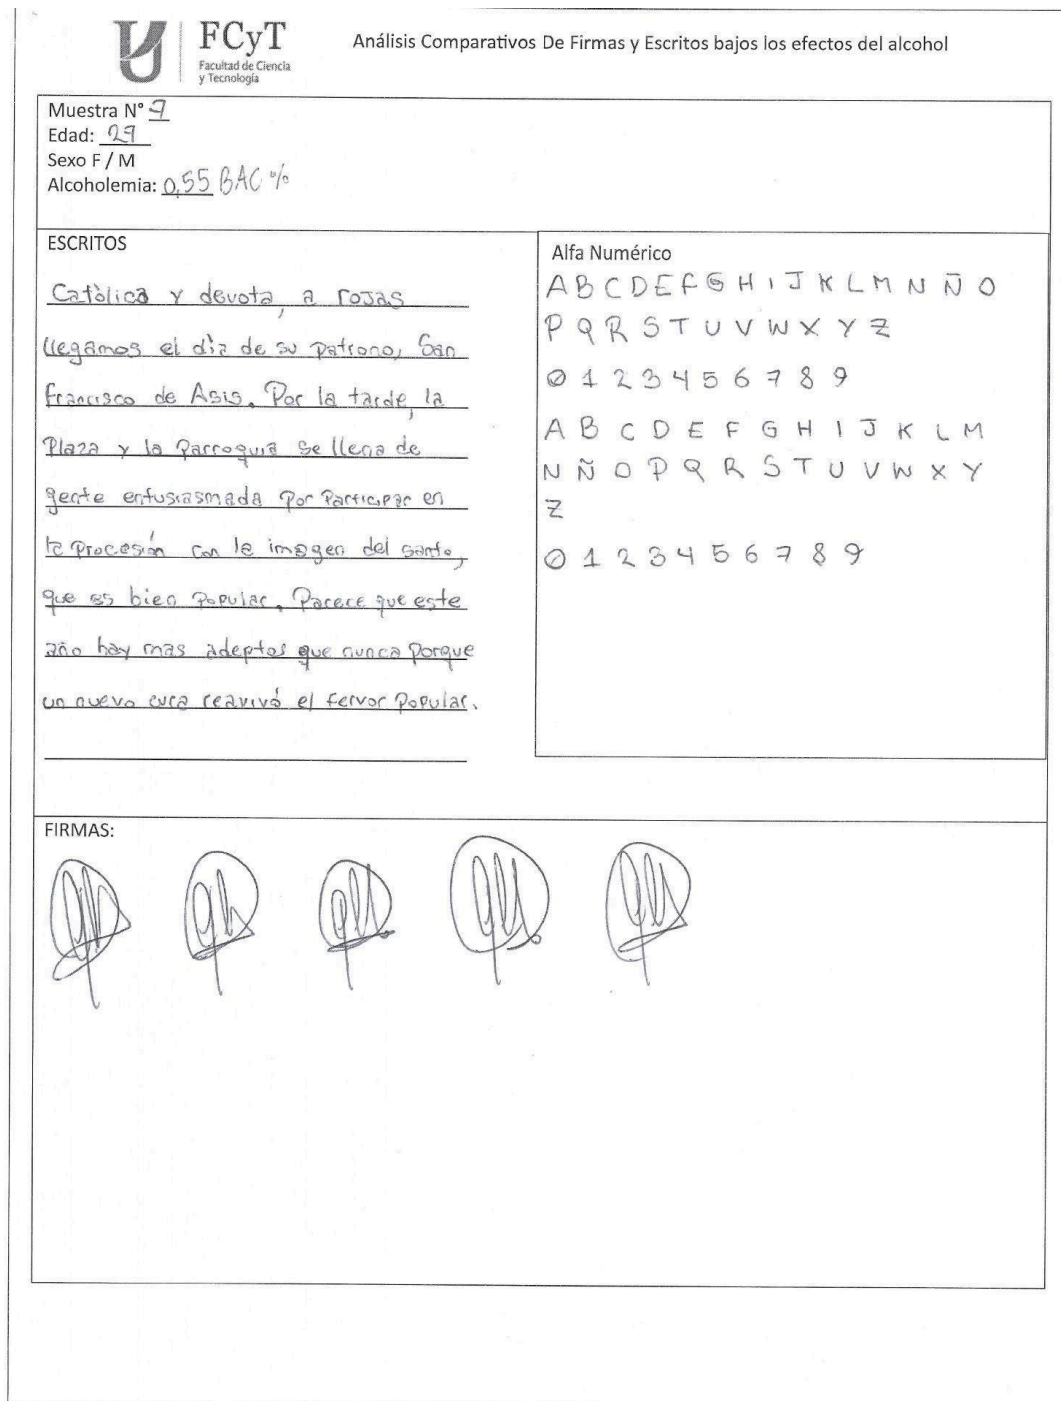 FCyT
Facultad de Ciencia
y Tecnología
Análisis Comparativos De Firmas y Escritos bajos los efectos del alcohol
Muestra N° 7
Edad: 27
Sexo F / M
Alcoholemia: 0,55 BAC %
ESCRITOS
Católica y devota, a rojas
llegamos el día de su patrono, San
Francisco de Asis. Por la tarde, la
Plaza y la Parroquia se llena de
gente entusiasmada por Participar en
la Procesión con la imagen del santo,
que es bien Popular. Parece que este
año hay mas adeptos que nunca Porque
un nuevo cura reavivó el fervor Popular.
Alfa Numérico
A B C D E F G H I J K L M N Ñ O
P Q R S T U V W X Y Z
0 1 2 3 4 5 6 7 8 9
A B C D E F G H I J K L M
N Ñ O P Q R S T U V W X Y
Z
0 1 2 3 4 5 6 7 8 9
FIRMAS: